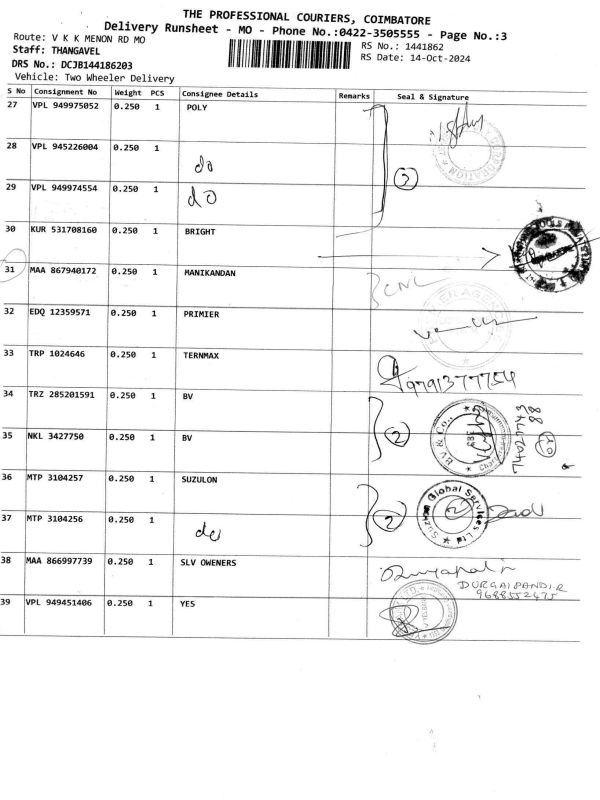 THE PROFESSIONAL COURIERS, COIMBATORE
Delivery Runsheet - MO - Phone No.:0422-3505555 - Page No.:3
Route: V K K MENON RD MO
RS No.: 1441862
Staff: THANGAVEL
RS Date: 14-Oct-2024
DRS No.: DCJB144186203
Vehicle: Two Wheeler Delivery
S No Consignment No Weight PCS Consignee Details Remarks Seal & Signature
27 VPL 949975052 0.250 1 POLY
28 VPL 945226004 0.250 1 do
29 VPL 949974554 0.250 1 do
3
30 KUR 531708160 0.250 1 BRIGHT
31 MAA 867940172 0.250 1 MANIKANDAN
32 EDQ 12359571 0.250 1 PRIMIER
33 TRP 1024646 0.250 1 TERNMAX
9791377754
34 TRZ 285201591 0.250 1 BV
35 NKL 3427750 0.250 1 BV
2
B.V. & Co.
36 MTP 3104257 0.250 1 SUZULON
37 MTP 3104256 0.250 1 do
2
Global Services
38 MAA 866997739 0.250 1 SLV OWENERS
DURGAIPANDI.R
9688552475
39 VPL 949451406 0.250 1 YES